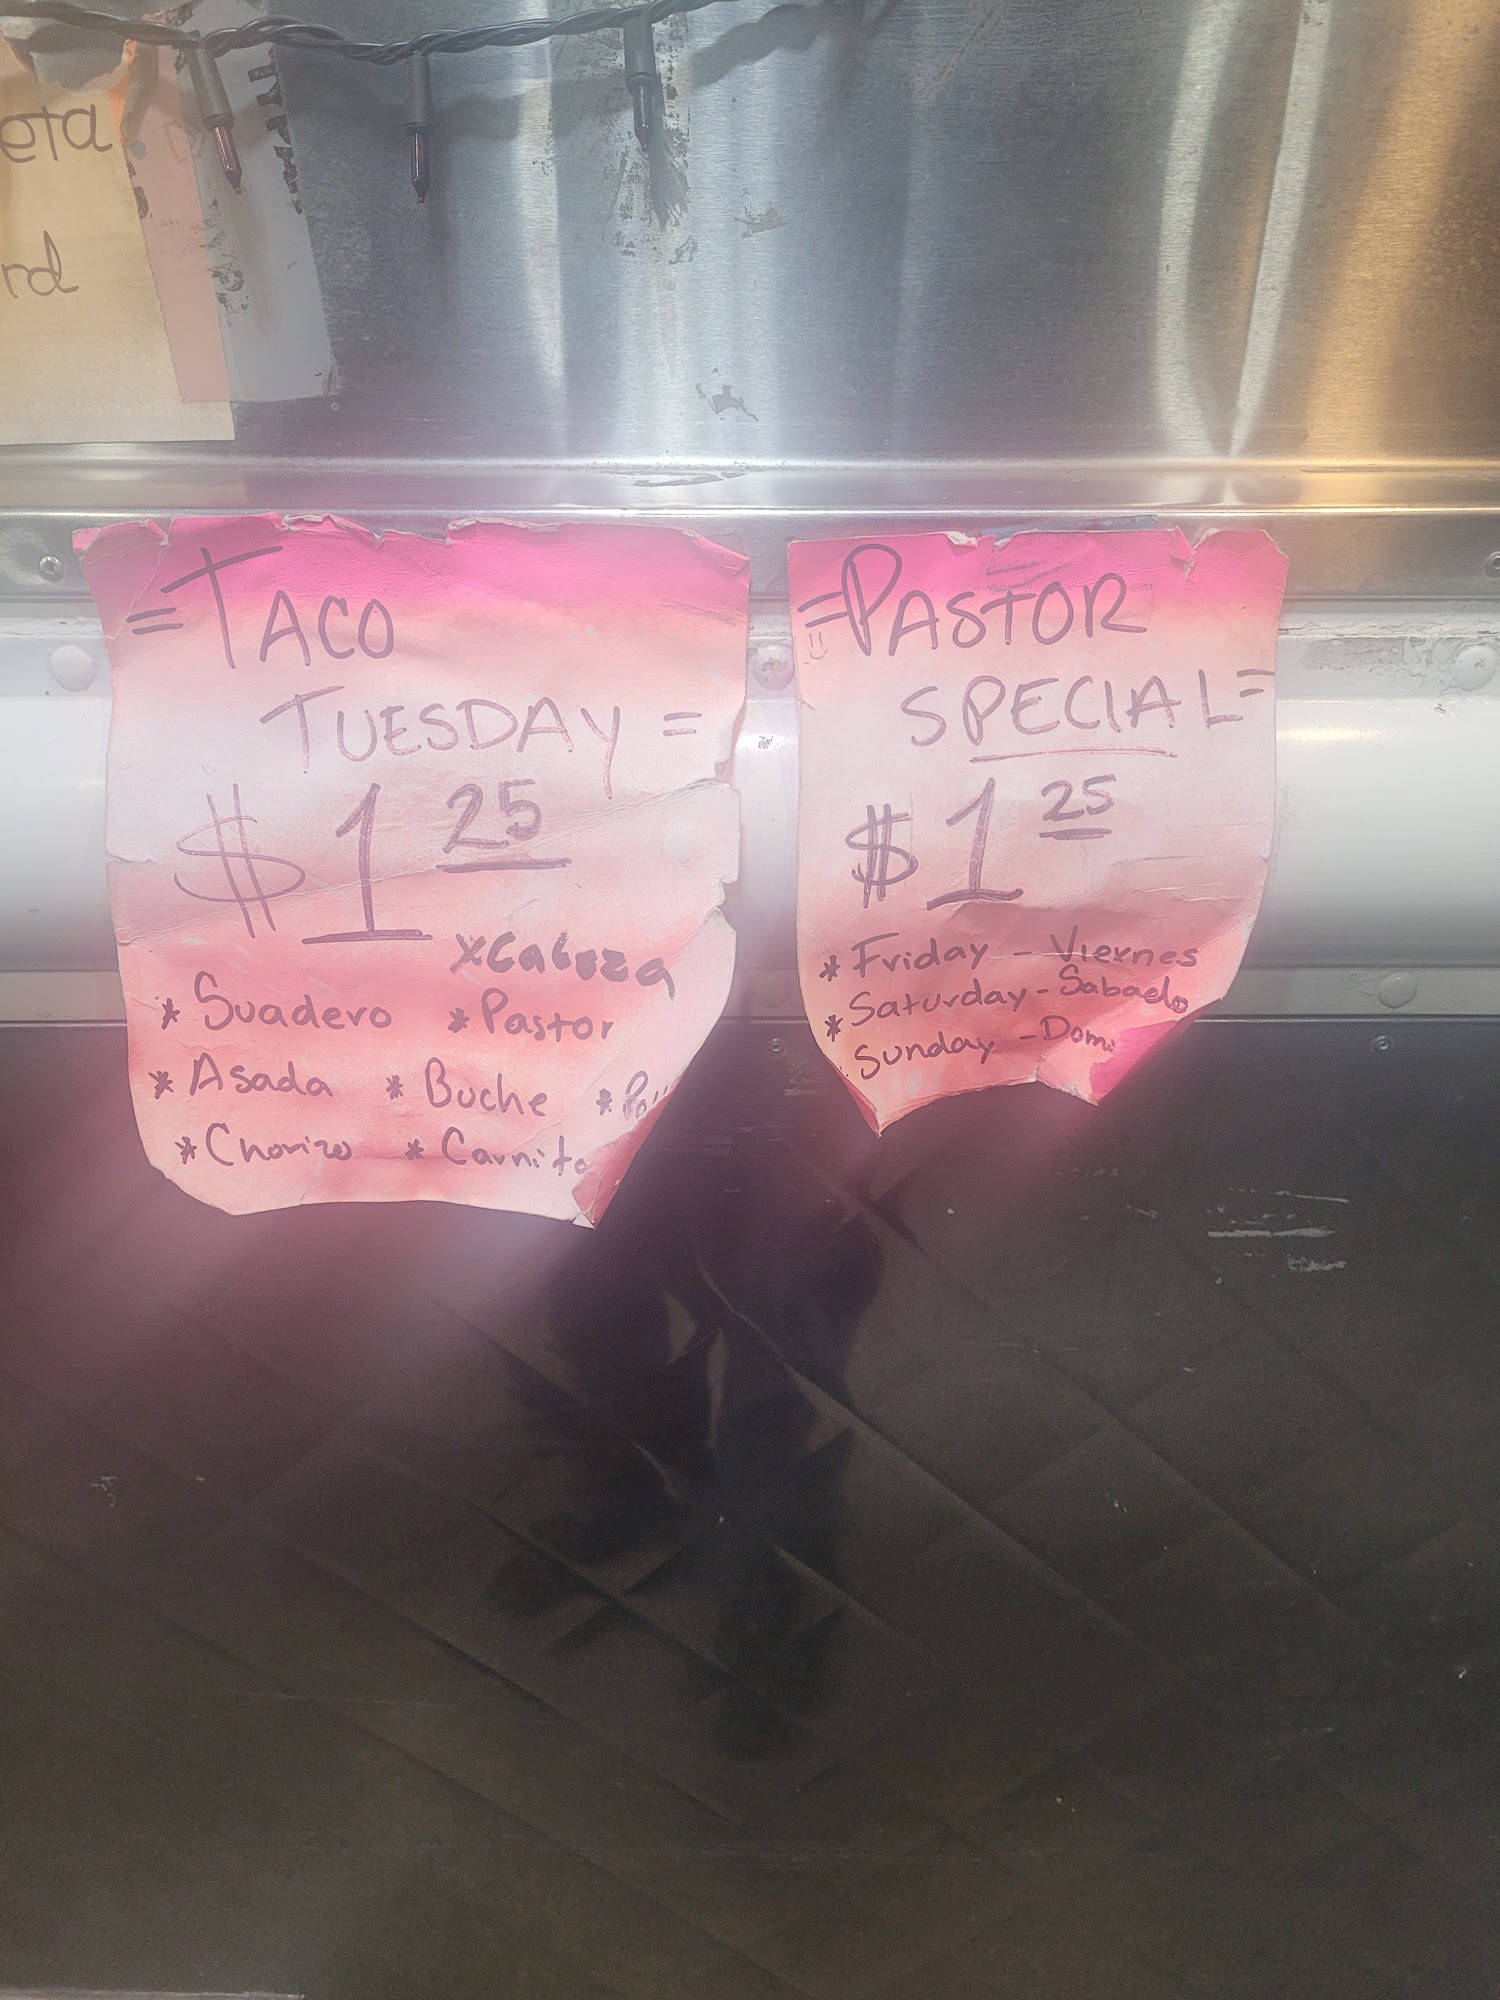 eta
rd
=TACO
TUESDAY=
$1 25
xCabeza
* Suadero * Pastor
* Asada * Buche *
* Chorizo * Carnita
=PASTOR
SPECIAL=
$1 25
* Friday - Viernes
* Saturday - Sabado
Sunday - Domi